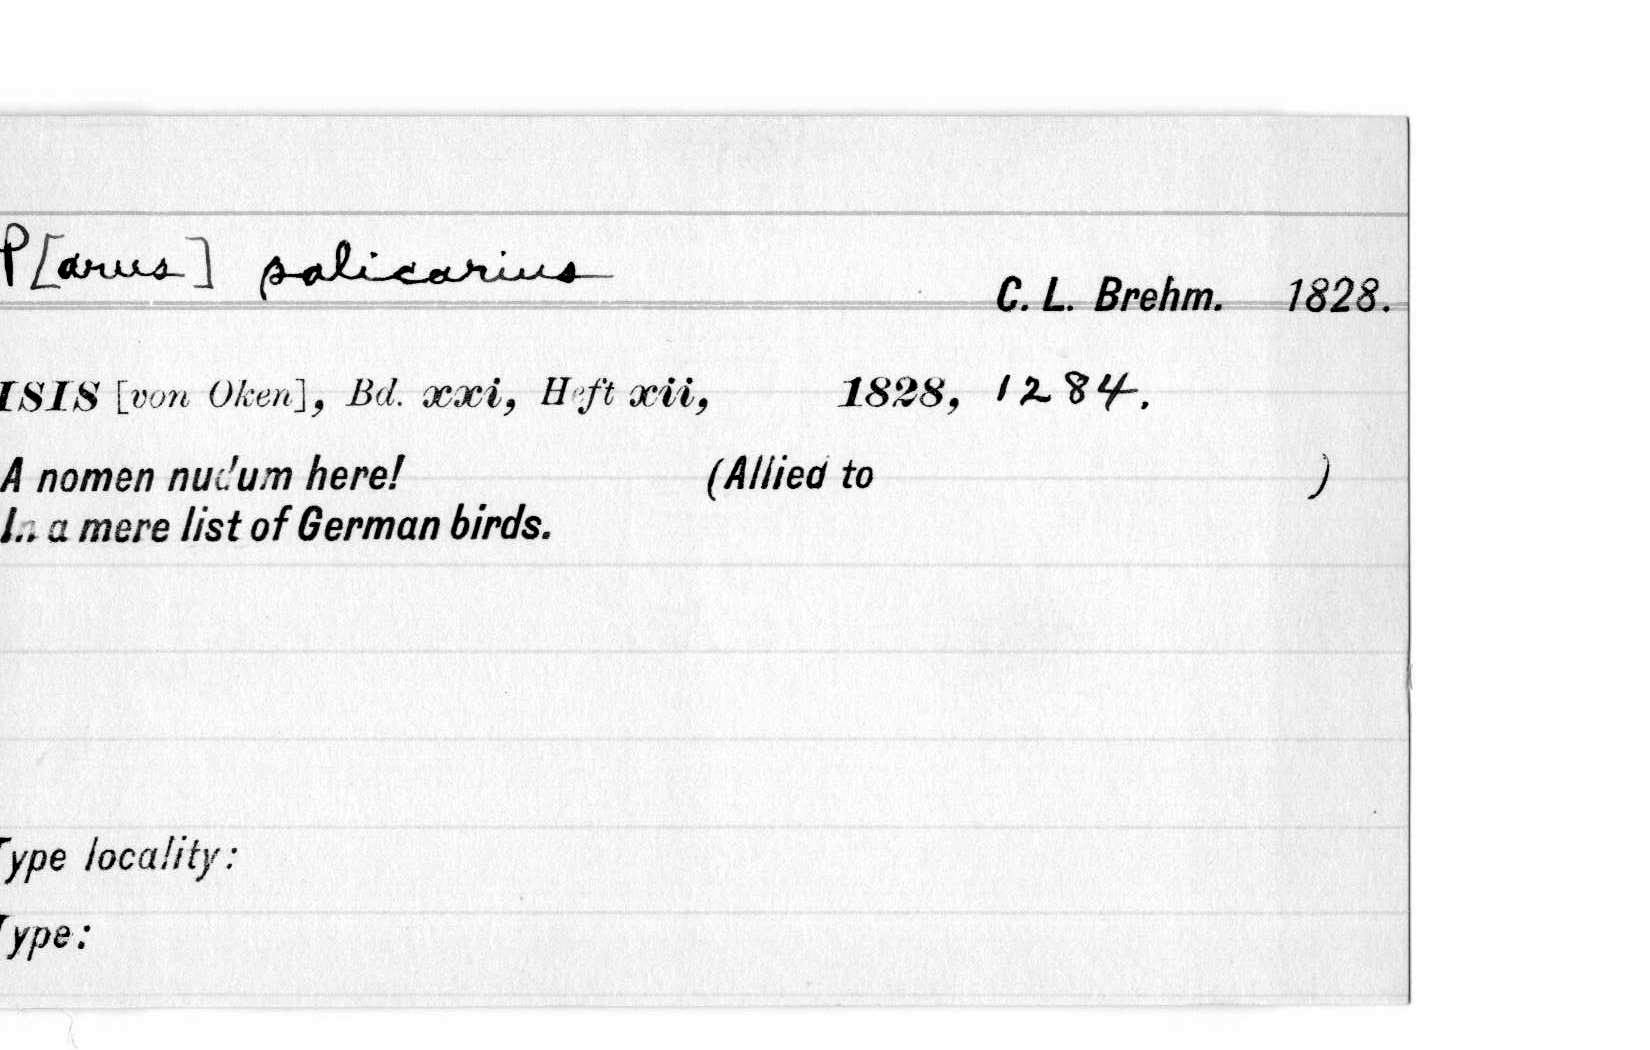 P[arus] salicarius
C. L. Brehm. 1828.
ISIS [von Oken], Bd. xxi, Heft xii, 1828, 1284.
A nomen nudum here! (Allied to )
In a mere list of German birds.
Type locality:
Type: